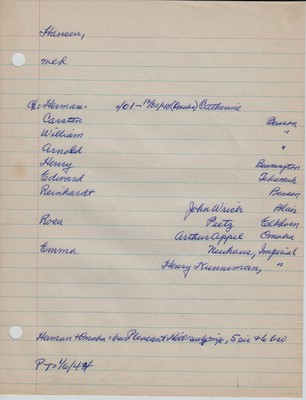 Hansen,
med
Herman 1/01 - (Omaha) Catherine
Carsten Benson
William "
Arnold "
Henry Bennington
Edward Tekamah
Reinhardt Benson
John Wrich Blair
Rosa Peetz Elkhorn
Arthur Appel Omaha
Emma Neuhaus, Imperial
Henry Kunneman, "
Herman + Omaha: bur Pleasant Hill 5 sis + 6 bro
P To 1/6/44